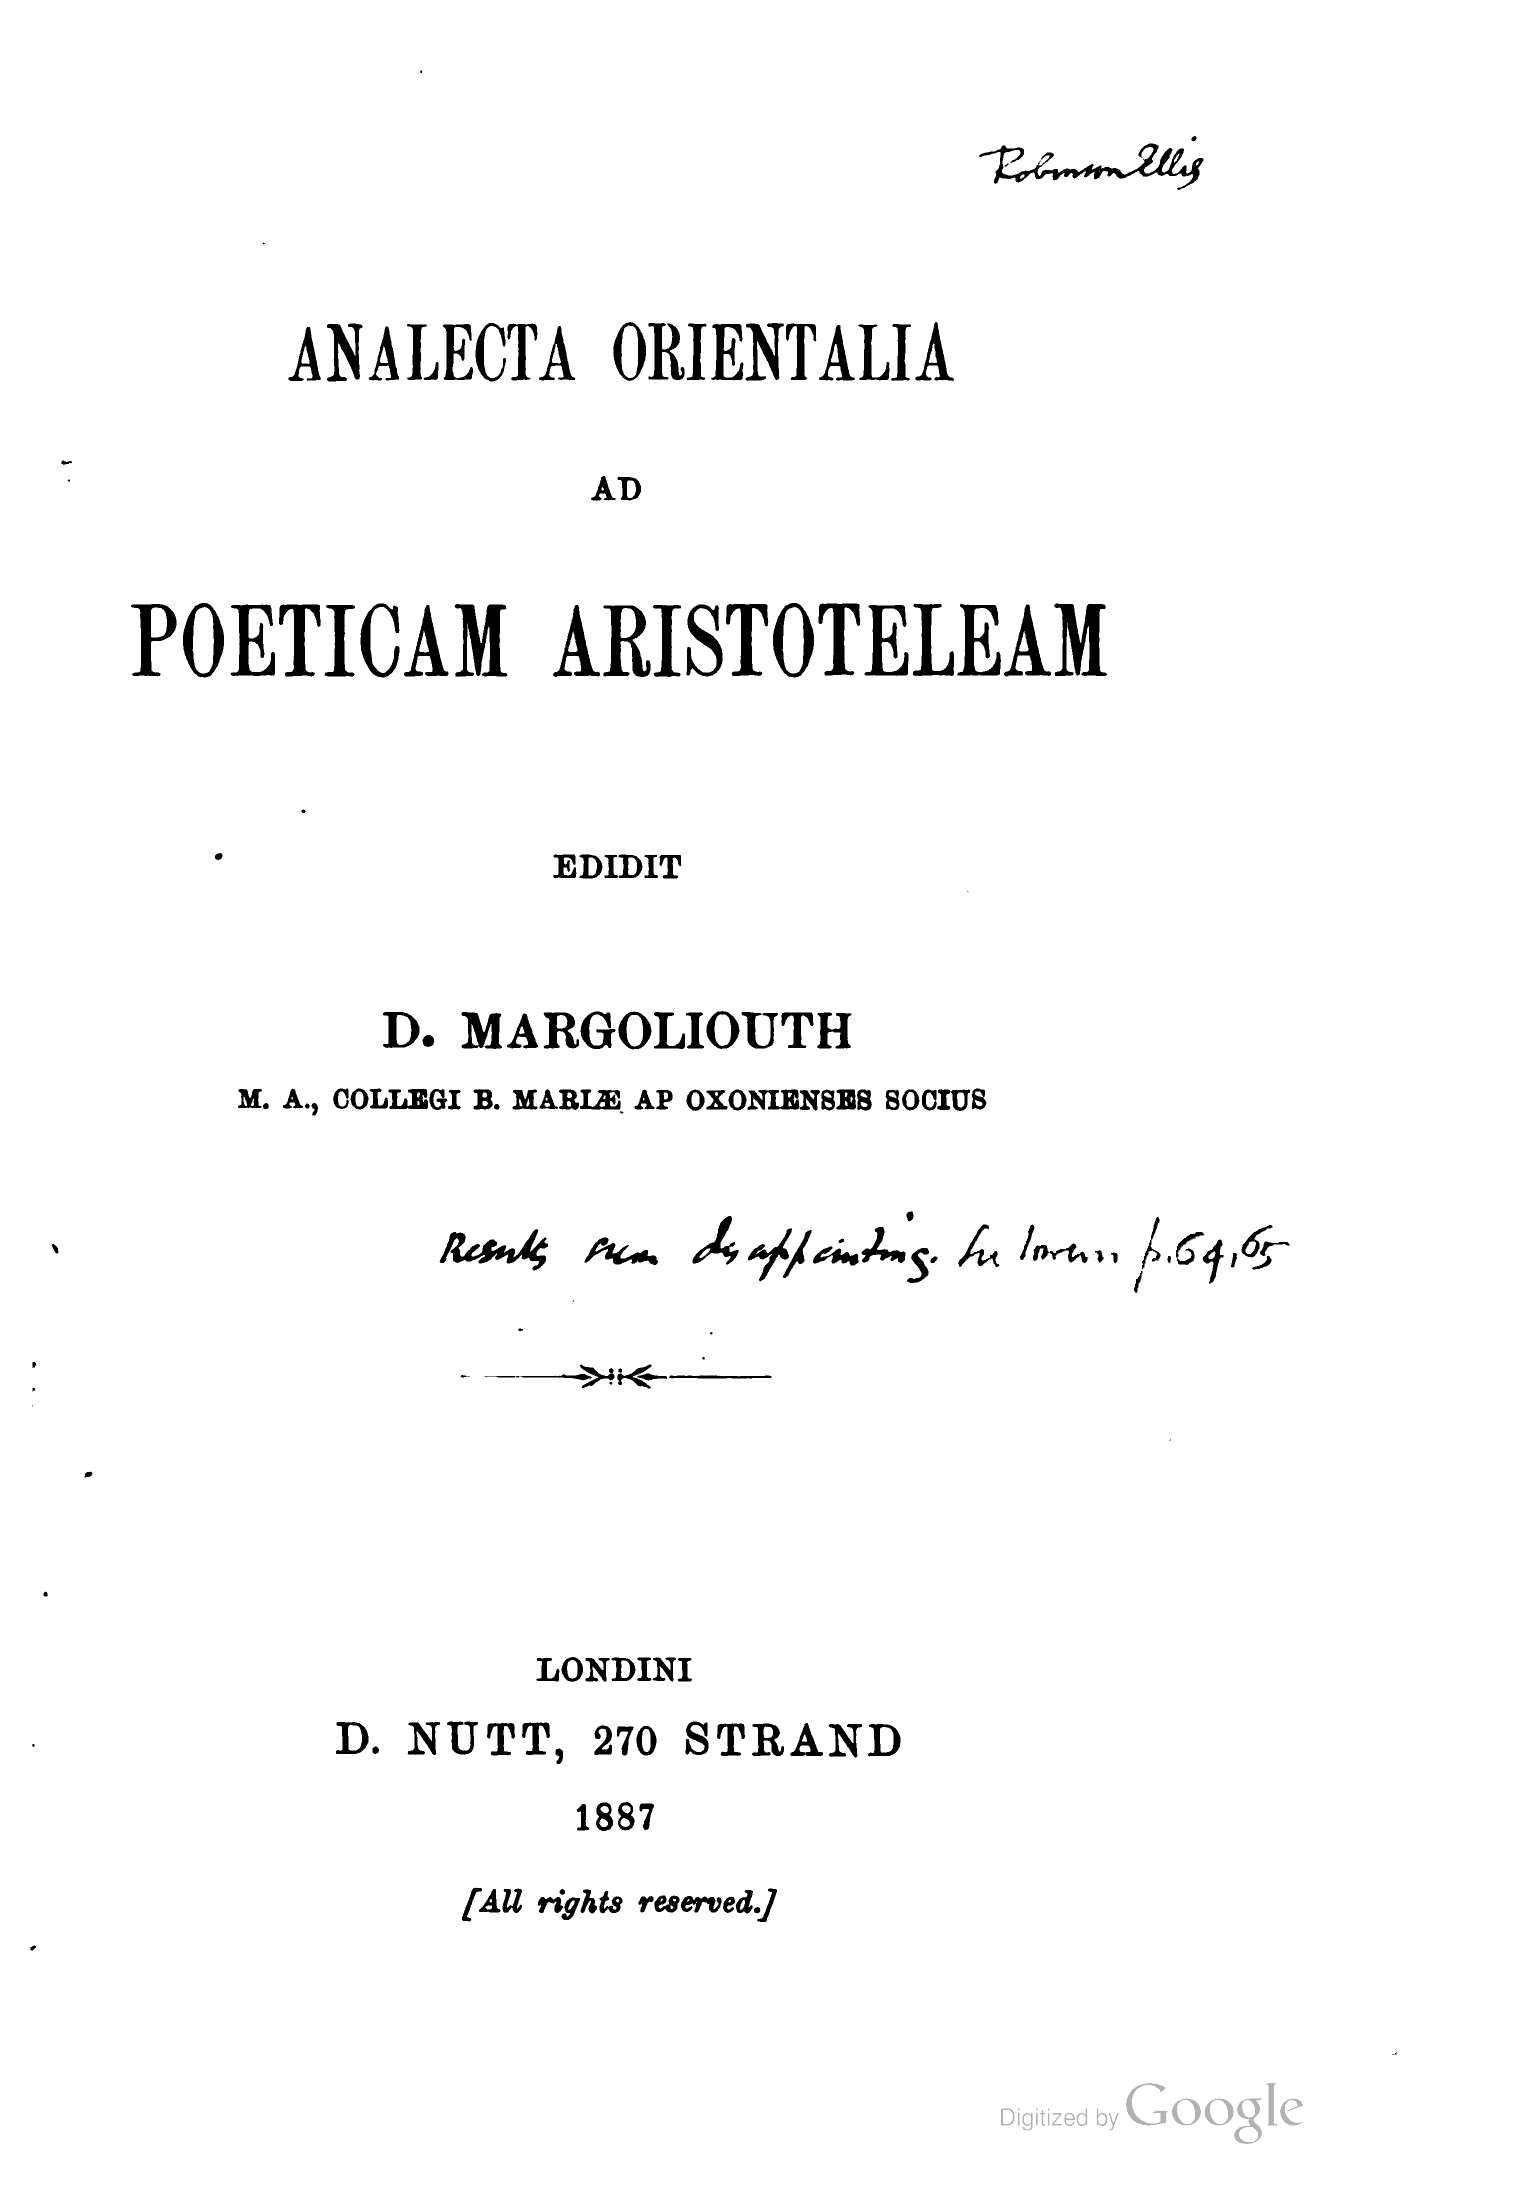 Robinson Ellis
ANALECTA ORIENTALIA
AD
POETICAM ARISTOTELEAM
EDIDIT
D. MARGOLIOUTH
M. A., COLLEGI B. MARIÆ AP OXONIENSES SOCIUS
Results seem disappointing. See p. 64, 65
LONDINI
D. NUTT, 270 STRAND
1887
[All rights reserved.]
Digitized by Google